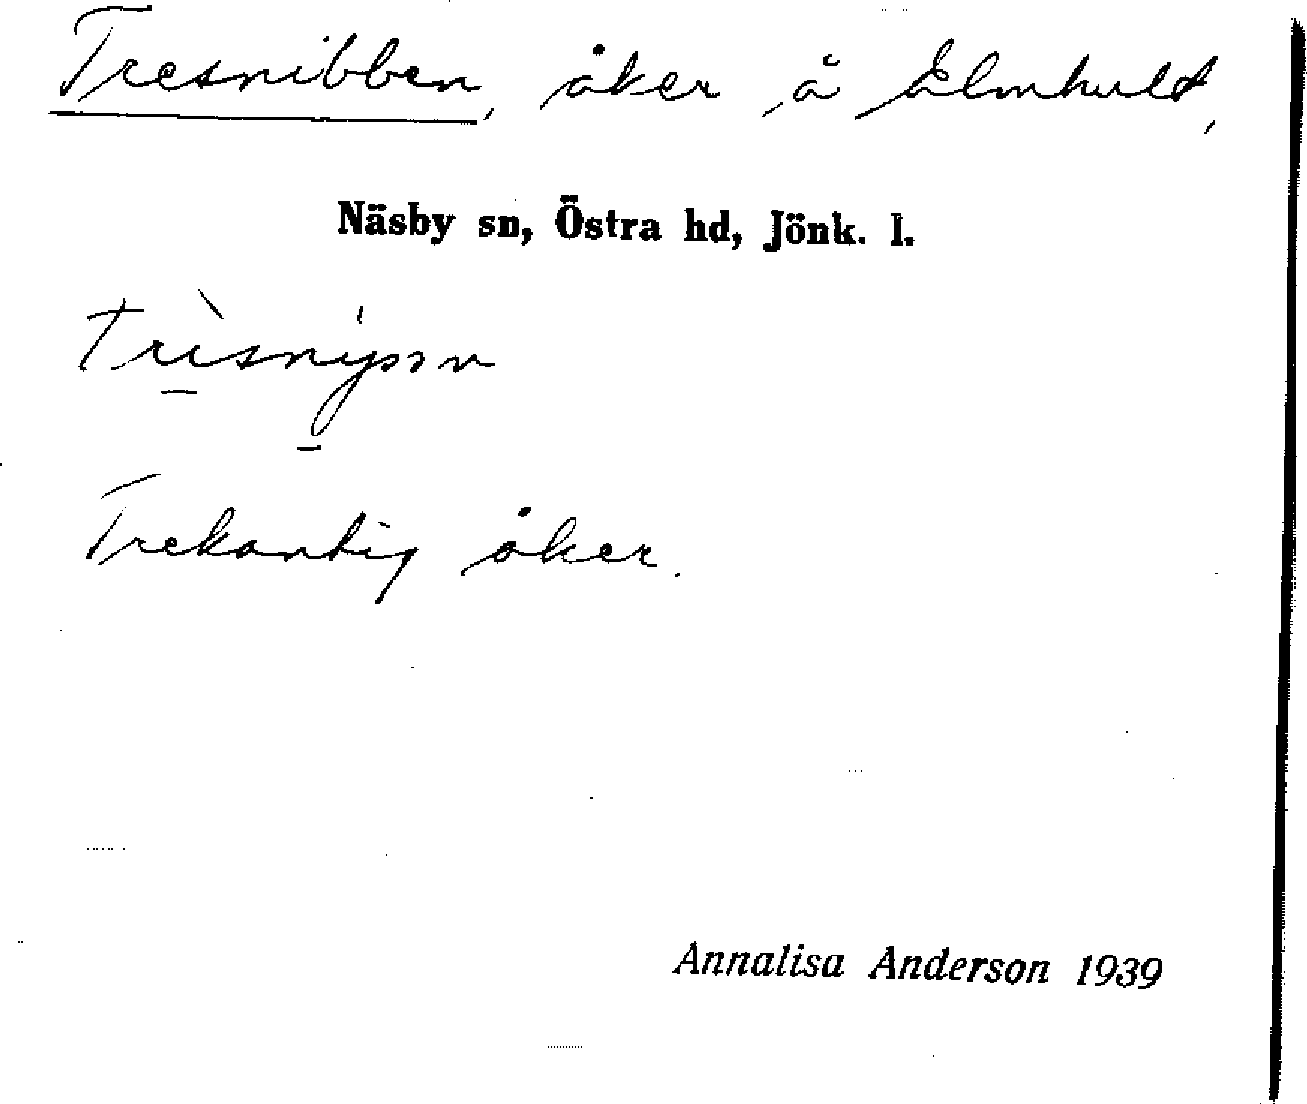 Tresnibben, åker å Elmhult,
Näsby sn, Östra hd, Jönk. l.
Trekantig åker.
Annalisa Anderson 1939